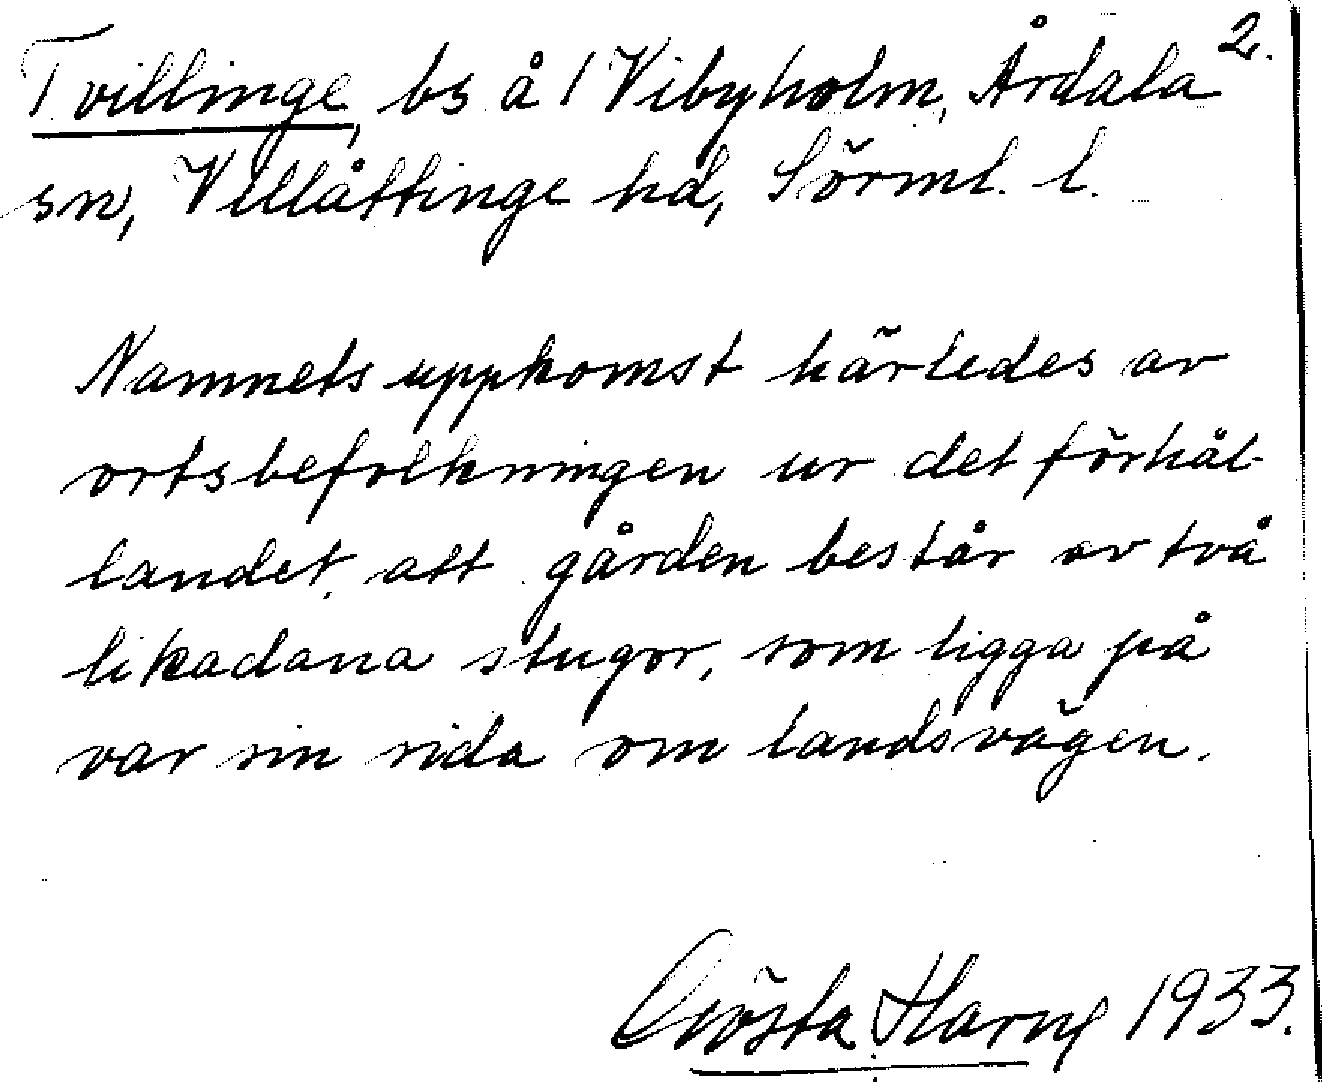 2.
Tvillinge, bs å / Vibyholm, Årdala
sn, Villåttinge hd, Sörml. l.
Namnets uppkomst härledes av
ortsbefolkningen ur det förhål-
landet, att gården består av två
likadana stugor, som ligga på
var sin sida om landsvägen.
Gösta 1933.